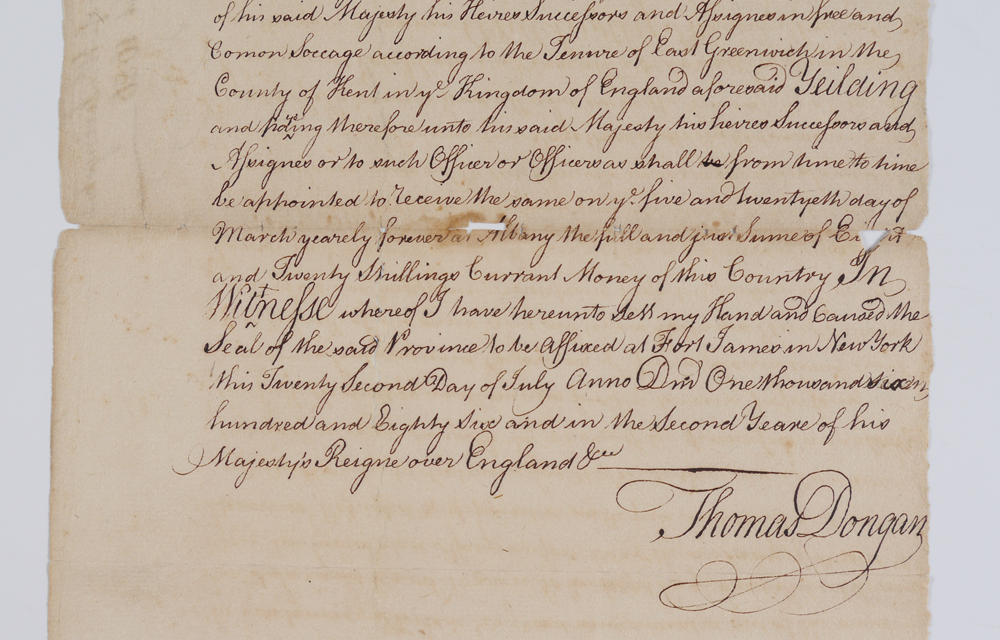 of his said Majesty his Heires Successors and Assignes in free and
Comon Soccage according to the Tenure of East Greenwich in the
County of Kent in ye Kingdom of England aforesaid Yeilding
and therefore unto his said Majesty his heires Successors and
Assignes or to such Officer or Officers as shall be from time to time
be appointed to receive the same on ye five and twentyeth day of
March yearely forever at Albany the full and just Sume of
and Twenty Shillings Currant Money of this Country In
Witnesse whereof I have hereunto sett my Hand and Caused the
Seal of the said Province to be Affixed at Fort James in New York
this Twenty Second Day of July Anno Dm̄ One thousand six
hundred and Eighty Six and in the Second Yeare of his
Majesty's Reigne over England &ca
Thomas Dongan